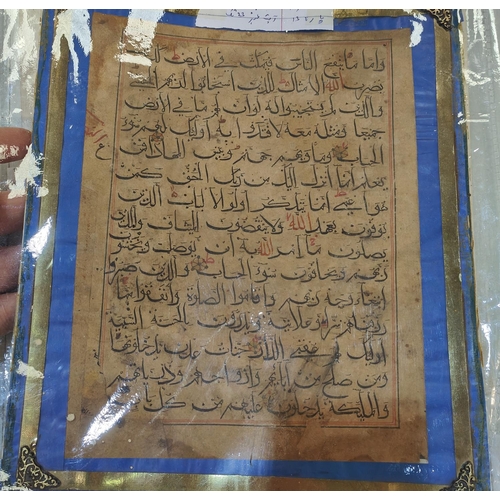 واما ما ينفع الناس فيمكث في الارض كذلك
يضرب الله الامثال للذين استجابوا لربهم الحسنى
والذين لم يستجيبوا له لو ان لهم ما في الارض
جميعا ومثله معه لافتدوا به اولئك لهم سوء
الحساب وماويهم جهنم وبئس المهاد افمن
يعلم انما انزل اليك من ربك الحق كمن
هو اعمى انما يتذكر اولوا الالباب الذين
يوفون بعهد الله ولا ينقضون الميثاق والذين
يصلون ما امر الله به ان يوصل ويخشون
ربهم ويخافون سوء الحساب والذين صبروا
ابتغاء وجه ربهم واقاموا الصلوة وانفقوا مما
رزقناهم سرا وعلانية ويدرؤن بالحسنة السيئة
اولئك لهم عقبى الدار جنات عدن يدخلونها
ومن صلح من ابائهم وازواجهم وذرياتهم
والملئكة يدخلون عليهم من كل باب